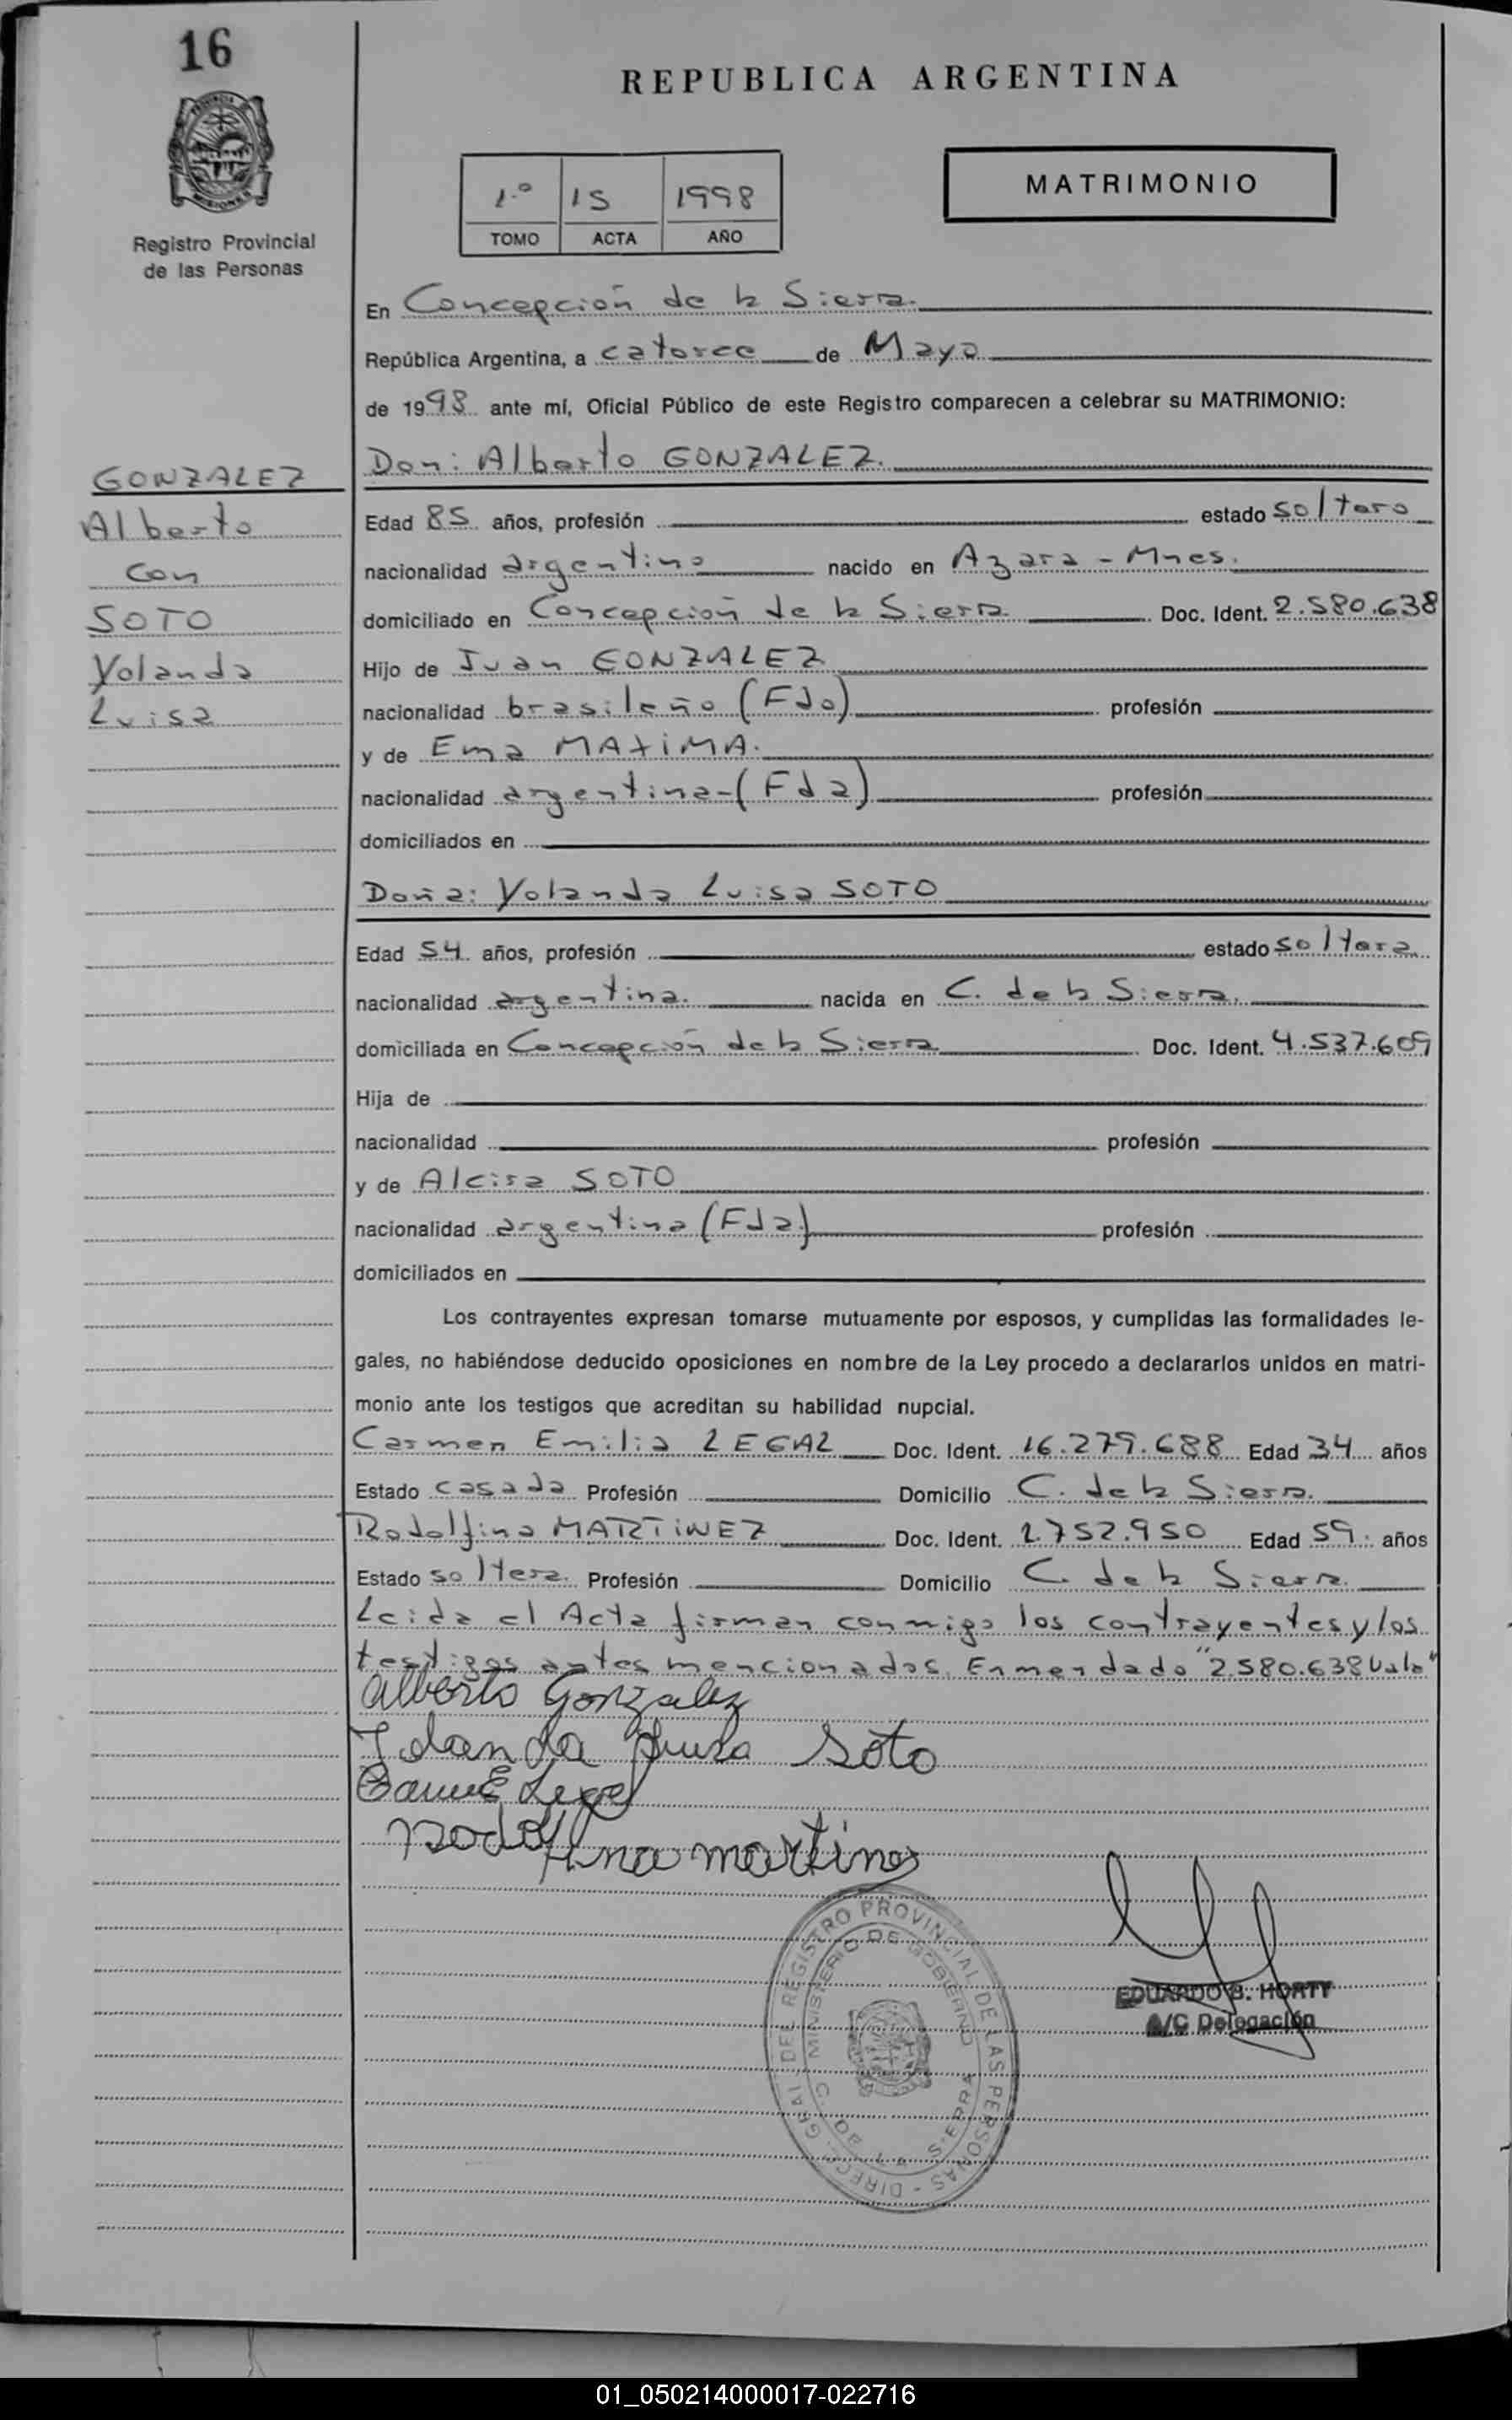 16
REPUBLICA ARGENTINA
PROVINCIA DE MISIONES
Registro Provincial
de las Personas
1.º 15 1998
TOMO ACTA AÑO
MATRIMONIO
En Concepción de la Sierra.
República Argentina, a catorce de Mayo
de 1998 ante mí, Oficial Público de este Registro comparecen a celebrar su MATRIMONIO:
GONZALEZ
Alberto
con
SOTO
Yolanda
Luisa
Don: Alberto GONZALEZ.
Edad 85 años, profesión estado soltero
nacionalidad argentino nacido en Azara - Mnes.
domiciliado en Concepción de la Sierra Doc. Ident. 2.580.638
Hijo de Juan GONZALEZ
nacionalidad brasileño (Fdo) profesión
y de Ema MAXIMA.
nacionalidad argentina-(Fda) profesión
domiciliados en
Doña: Yolanda Luisa SOTO
Edad 54 años, profesión estado soltera
nacionalidad argentina. nacida en C. de la Sierra.
domiciliada en Concepción de la Sierra Doc. Ident. 4.537.609
Hija de
nacionalidad profesión
y de Alcira SOTO
nacionalidad argentina (Fda) profesión
domiciliados en
Los contrayentes expresan tomarse mutuamente por esposos, y cumplidas las formalidades le-
gales, no habiéndose deducido oposiciones en nombre de la Ley procedo a declararlos unidos en matri-
monio ante los testigos que acreditan su habilidad nupcial.
Carmen Emilia LEGAL Doc. Ident. 16.279.688 Edad 34 años
Estado casada Profesión Domicilio C. de la Sierra.
Rodolfina MARTINEZ Doc. Ident. 2.752.950 Edad 59. años
Estado soltera. Profesión Domicilio C. de la Sierra.
Leida el Acta firman conmigo los contrayentes y los
testigos antes mencionados. Enmendado "2.580.638 Vale"
Alberto Gonzalez
Yolanda Luisa Soto
Carmen E Legal
Rodolfina martines
DIRECC. GRAL. DEL REGISTRO PROVINCIAL DE LAS PERSONAS -
MINISTERIO DE GOBIERNO
C. DE LA SIERRA
EDUARDO B. HORTY
A/C Delegación
01_050214000017-022716